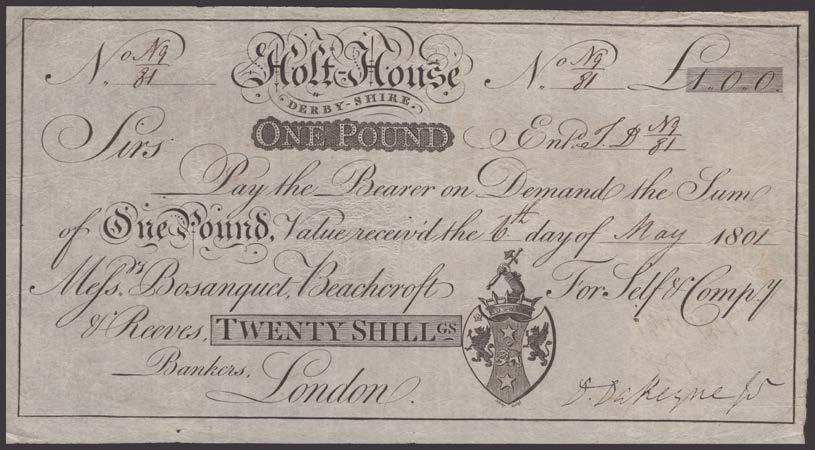 No. N9/81 Holt-House No. N9/81 £1.0.0.
DERBY-SHIRE.
ONE POUND Entd. J. D N9/81
Sirs
Pay the Bearer on Demand the Sum
of One Pound, Value receiv'd the 6th day of May 1801
Messrs. Bosanquet, Beachcroft For Self & Comp.y
& Reeves, TWENTY SHILLGS
Bankers, London.
D. Dakeyne Jr